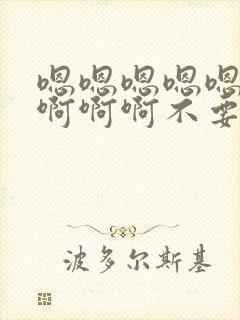 嗯嗯嗯嗯嗯
啊啊啊不要
波多尔斯基